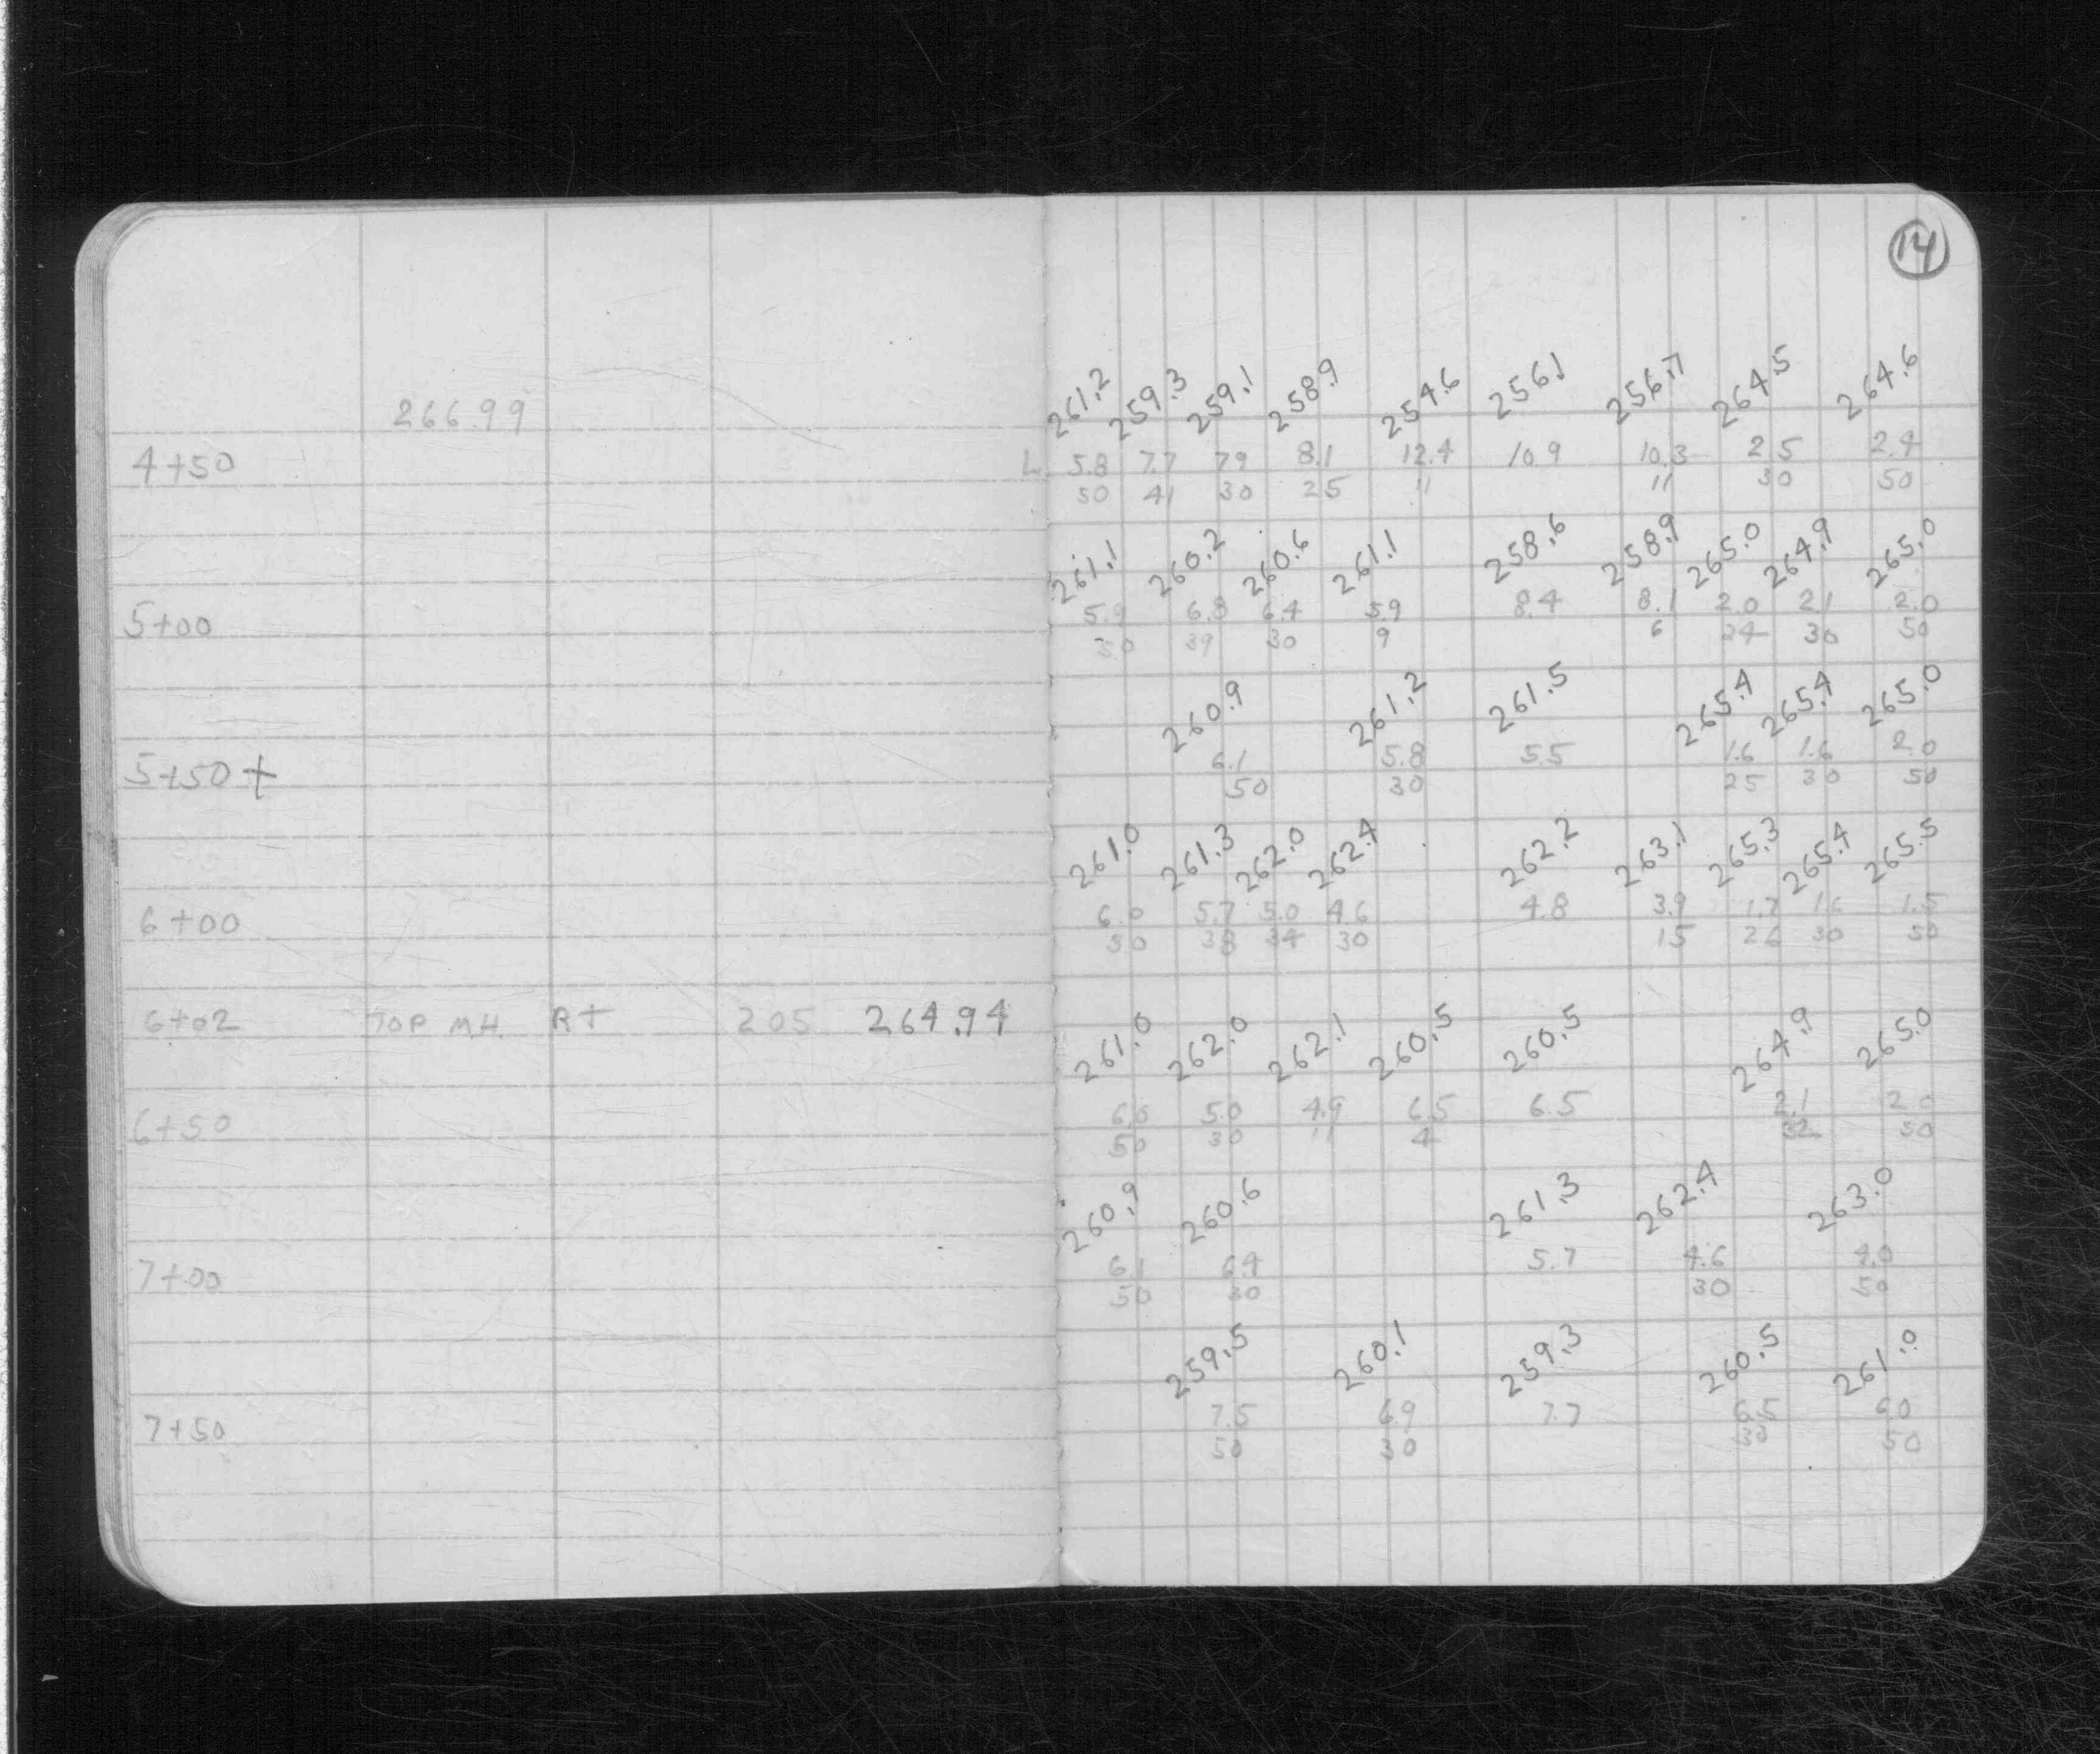 14
266.99
261.2 259.3 259.1 258.9 254.6 256.1 256.7 264.5 264.6
4+50 L 5.8 7.7 7.9 8.1 12.4 10.9 10.3 2.5 2.4
50 41 30 25 11 11 30 50
261.1 260.2 260.6 261.1 258.6 258.9 265.0 264.9 265.0
5+00 5.9 6.8 6.4 5.9 8.4 8.1 2.0 2.1 2.0
50 39 30 9 6 24 30 50
260.9 261.2 261.5 265.4 265.4 265.0
5+50+ 6.1 5.8 5.5 1.6 1.6 2.0
50 30 25 30 50
261.0 261.3 262.0 262.4 262.2 263.1 265.3 265.4 265.5
6+00 6.0 5.7 5.0 4.6 4.8 3.9 1.7 1.6 1.5
50 38 34 30 15 26 30 50
6+02 TOP M.H. Rt 205 264.94
261.0 262.0 262.1 260.5 260.5 264.9 265.0
6+50 6.0 5.0 4.9 6.5 6.5 2.1 2.0
50 30 11 4 32 50
260.9 260.6 261.3 262.4 263.0
7+00 6.1 6.4 5.7 4.6 4.0
50 30 30 50
259.5 260.1 259.3 260.5 261.0
7+50 7.5 6.9 7.7 6.5 6.0
50 30 30 50